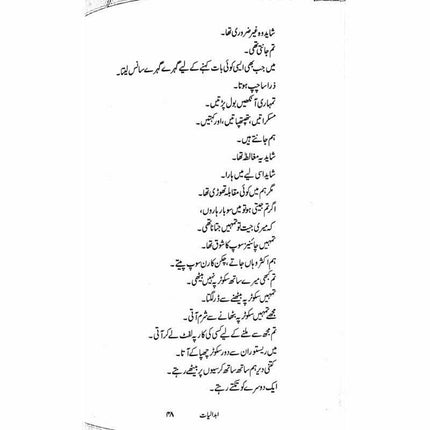 شاید وہ غیر ضروری تھا۔
تم جانتی تھی۔
میں جب بھی ایسی کوئی بات کہنے کے لیے گہرے گہرے سانس لیتا۔
ذرا سا چپ ہوتا۔
تمہاری آنکھیں بول پڑتیں۔
مسکراتیں، تھپتھپاتیں، اور کہتیں۔
ہم جانتے ہیں۔
شاید یہ مغالطہ تھا۔
شاید اسی لیے میں ہارا۔
مگر ہم میں کوئی مقابلہ تھوڑی تھا۔
اگر تم جیتی ہو تو میں سو بار ہاروں،
کہ میری جیت تو تمہیں جتانا تھی۔
تمہیں چائنیز سوپ کا شوق تھا۔
ہم اکثر وہاں جاتے، چکن کارن سوپ پیتے۔
تم کبھی میرے ساتھ سکوٹر پہ نہیں بیٹھی۔
تمہیں سکوٹر پہ بیٹھنے سے ڈر لگتا۔
مجھے تمہیں سکوٹر پہ بٹھانے سے شرم آتی۔
تم مجھ سے ملنے کے لیے کسی کی کار پہ لفٹ لے کر آتی۔
میں ریستوران سے دور سکوٹر چھپا کے آتا۔
کتنی دیر ہم ساتھ ساتھ کرسیوں پر بیٹھے رہتے۔
ایک دوسرے کو تکتے رہتے۔
ابدالیات ۳۸